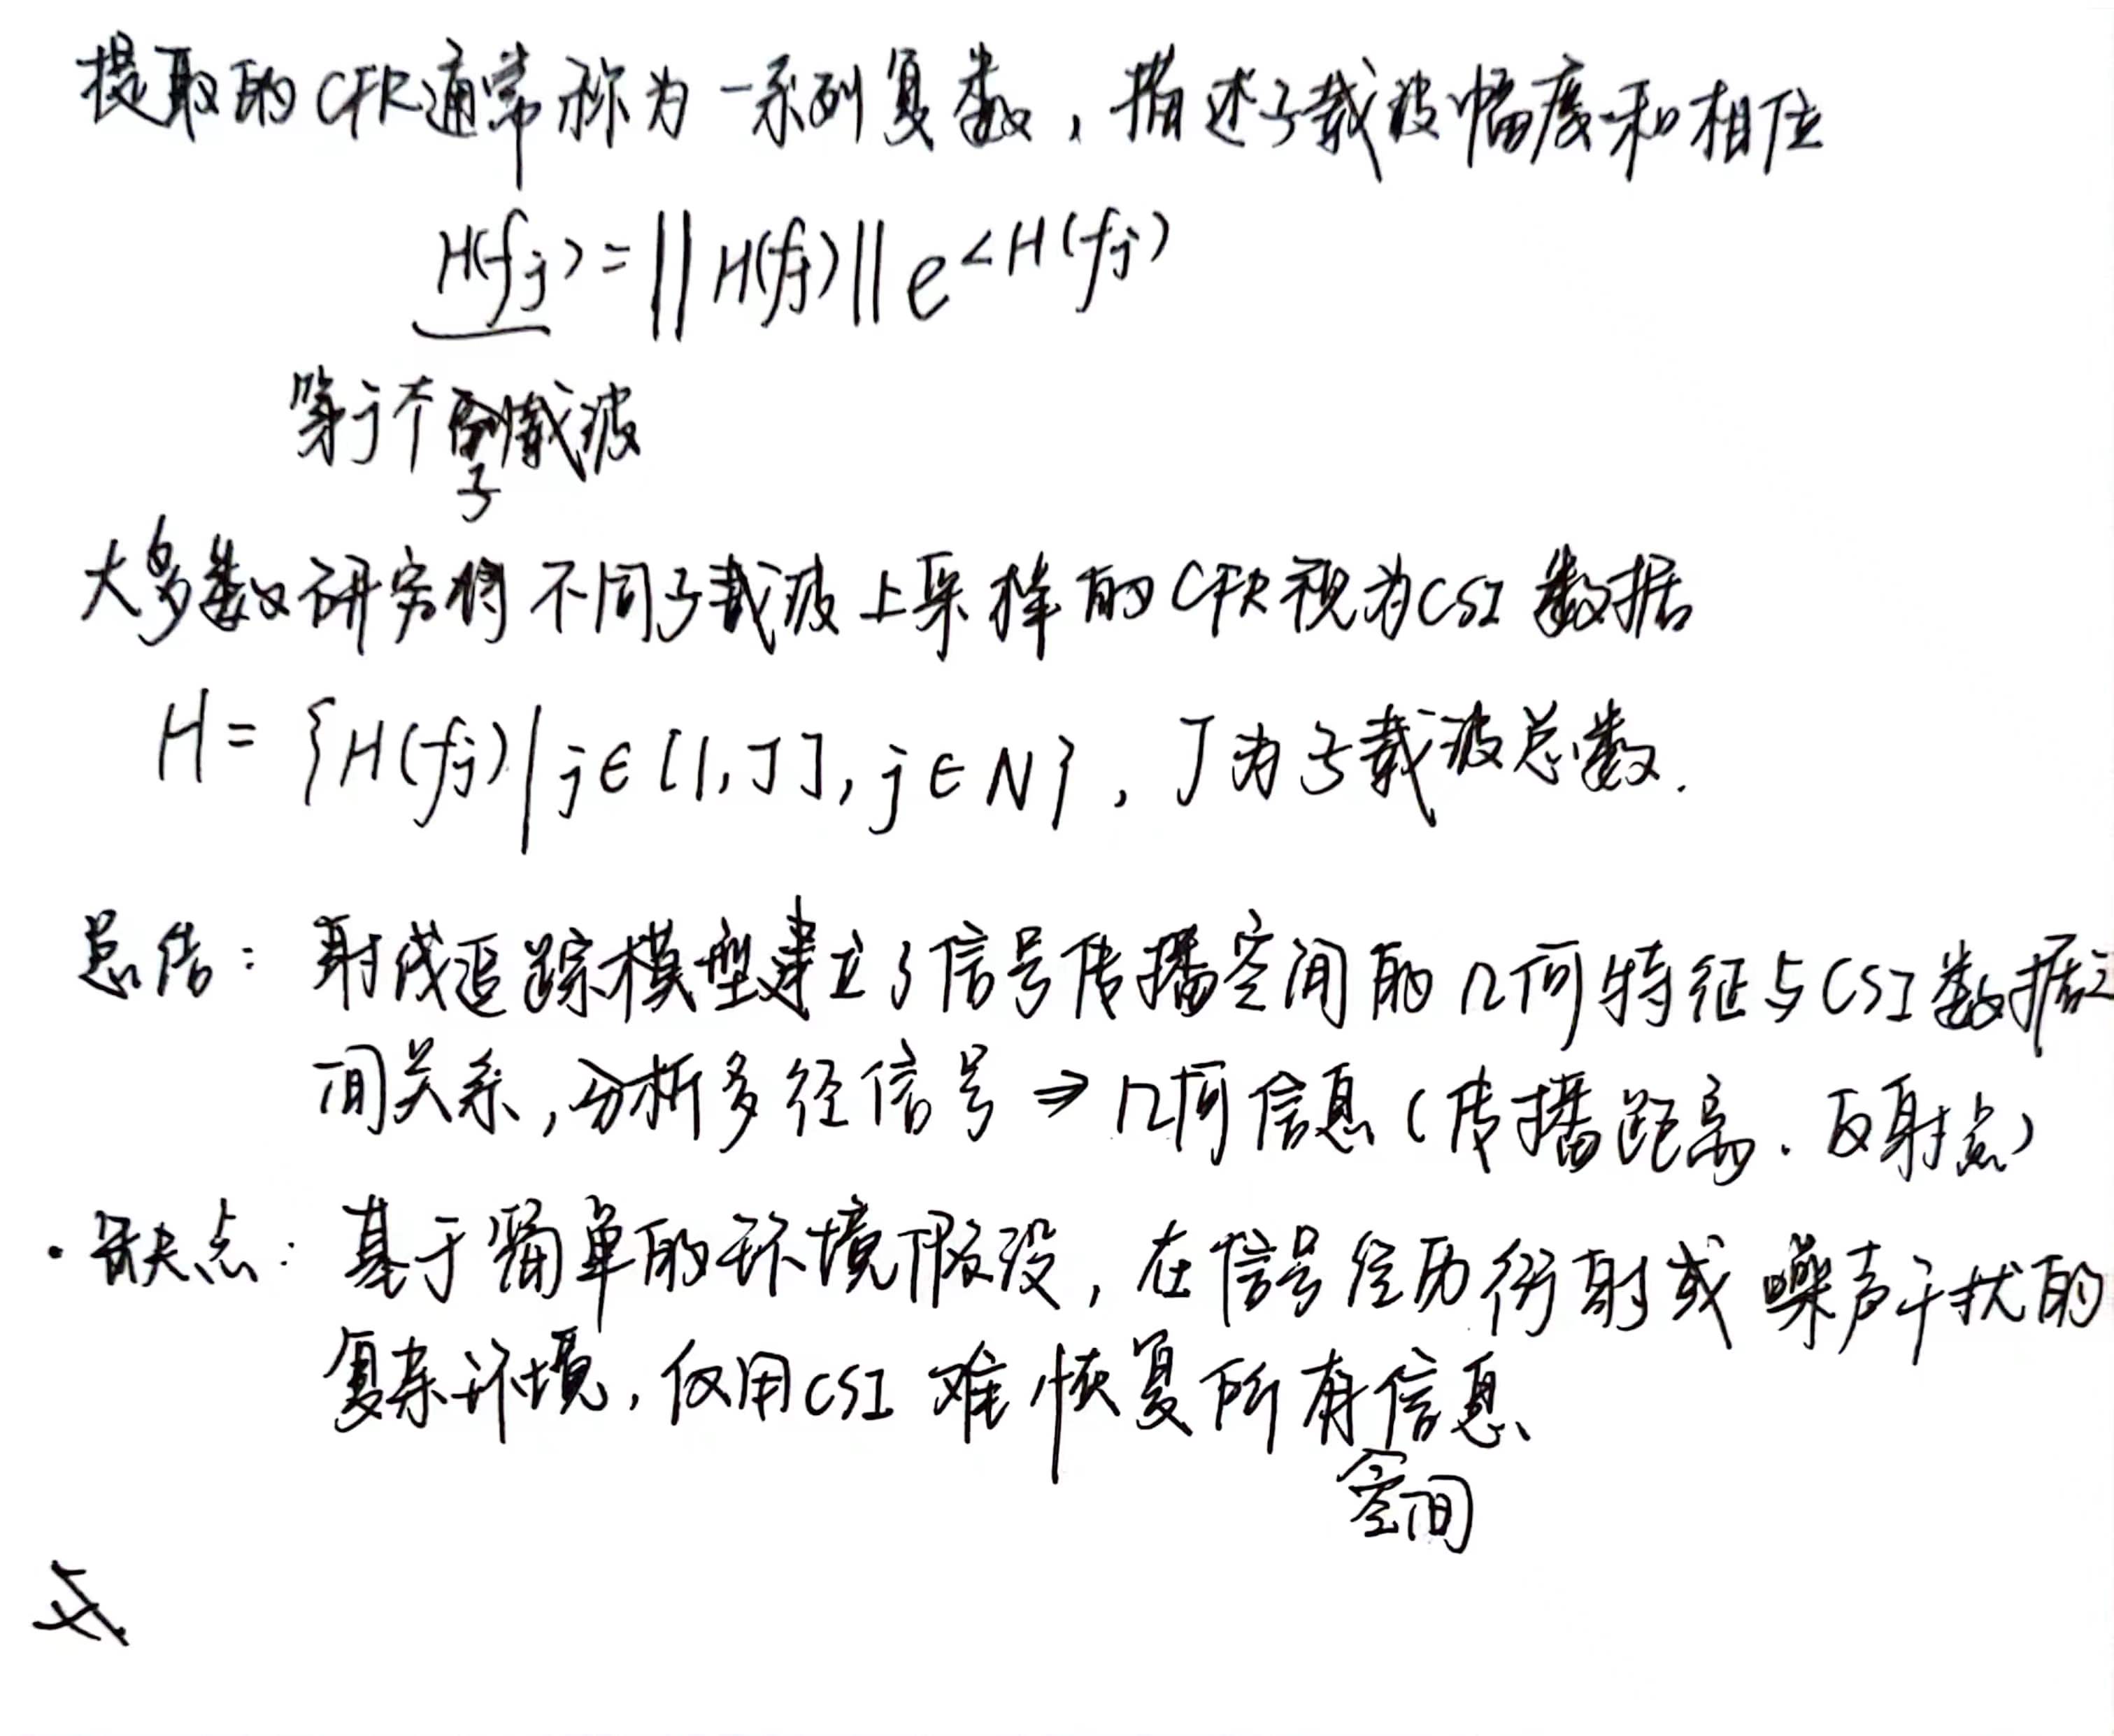 提取的CFR通常称为一系列复数，描述子载波幅度和相位
H(fj)=||H(fj)||e^∠H(fj)
第j个子载波
大多数研究将不同子载波上采样的CFR视为CSI数据
H={H(fj)|j∈[1,J],j∈N}，J为子载波总数.
总结：射线追踪模型建立了信号传播空间的几何特征与CSI数据之
间关系,分析多径信号⇒几何信息(传播距离.反射点)
·缺点：基于简单的环境假设，在信号经历衍射或噪声干扰的
复杂环境，仅用CSI难恢复所有信息
空间